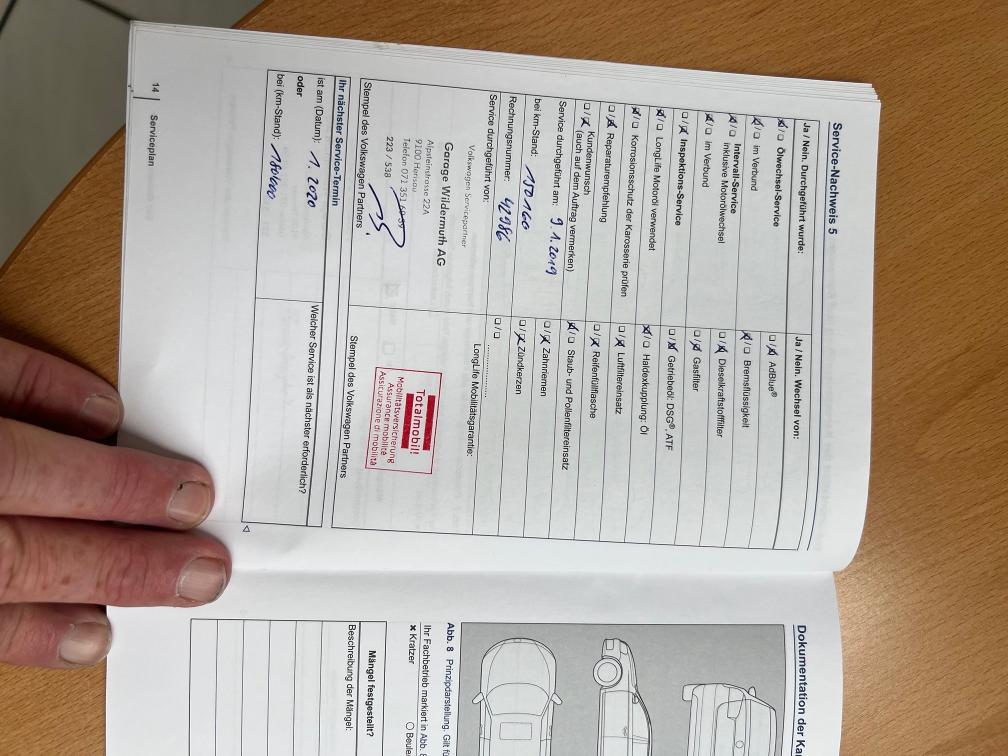 Service-Nachweis 5
Ja / Nein. Durchgeführt wurde:
☒/☐ Ölwechsel-Service
☒/☐ im Verbund
☒/☐ Intervall-Service
inklusive Motorölwechsel
☒/☐ im Verbund
☐/☒ Inspektions-Service
☒/☐ LongLife Motoröl verwendet
☒/☐ Korrosionsschutz der Karosserie prüfen
☐/☒ Reparaturempfehlung
☐/☒ Kundenwunsch
(auch auf dem Auftrag vermerken)
Service durchgeführt am: 9.1.2019
bei km-Stand: 150160
Rechnungsnummer: 42986
Service durchgeführt von:
Volkswagen Servicepartner
Garage Wildermuth AG
Alpsteinstrasse 22A
9100 Herisau
Telefon 071 351
223 / 538
Stempel des Volkswagen Partners
Ja / Nein. Wechsel von:
☐/☒ AdBlue®
☒/☐ Bremsflüssigkeit
☐/☒ Dieselkraftstofffilter
☐/☒ Gasfilter
☐/☒ Getriebeöl: DSG®, ATF
☒/☐ Haldexkupplung: Öl
☐/☒ Luftfiltereinsatz
☐/☒ Reifenfüllflasche
☒/☐ Staub- und Pollenfiltereinsatz
☐/☒ Zahnriemen
☐/☒ Zündkerzen
☐/☐ ....................
LongLife Mobilitätsgarantie:
Totalmobil!
Mobilitätsversicherung
Assurance mobilité
Assicurazione di mobilità
Stempel des Volkswagen Partners
Ihr nächster Service-Termin
ist am (Datum): 1.2020
oder
bei (km-Stand): 180000
Welcher Service ist als nächster erforderlich?
14 Serviceplan
Dokumentation der
Abb. 8 Prinzipdarstellung. Gilt
Ihr Fachbetrieb markiert in Abb. 8
✖ Kratzer
○ Beule
Mängel festgestellt?
Beschreibung der Mängel: